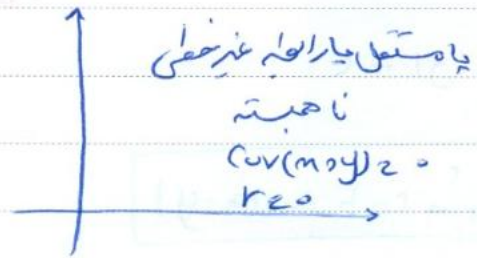 یا مستقل یا رابطه غیرخطی
ناهمبسته
Cov(x,y)=0
r=0